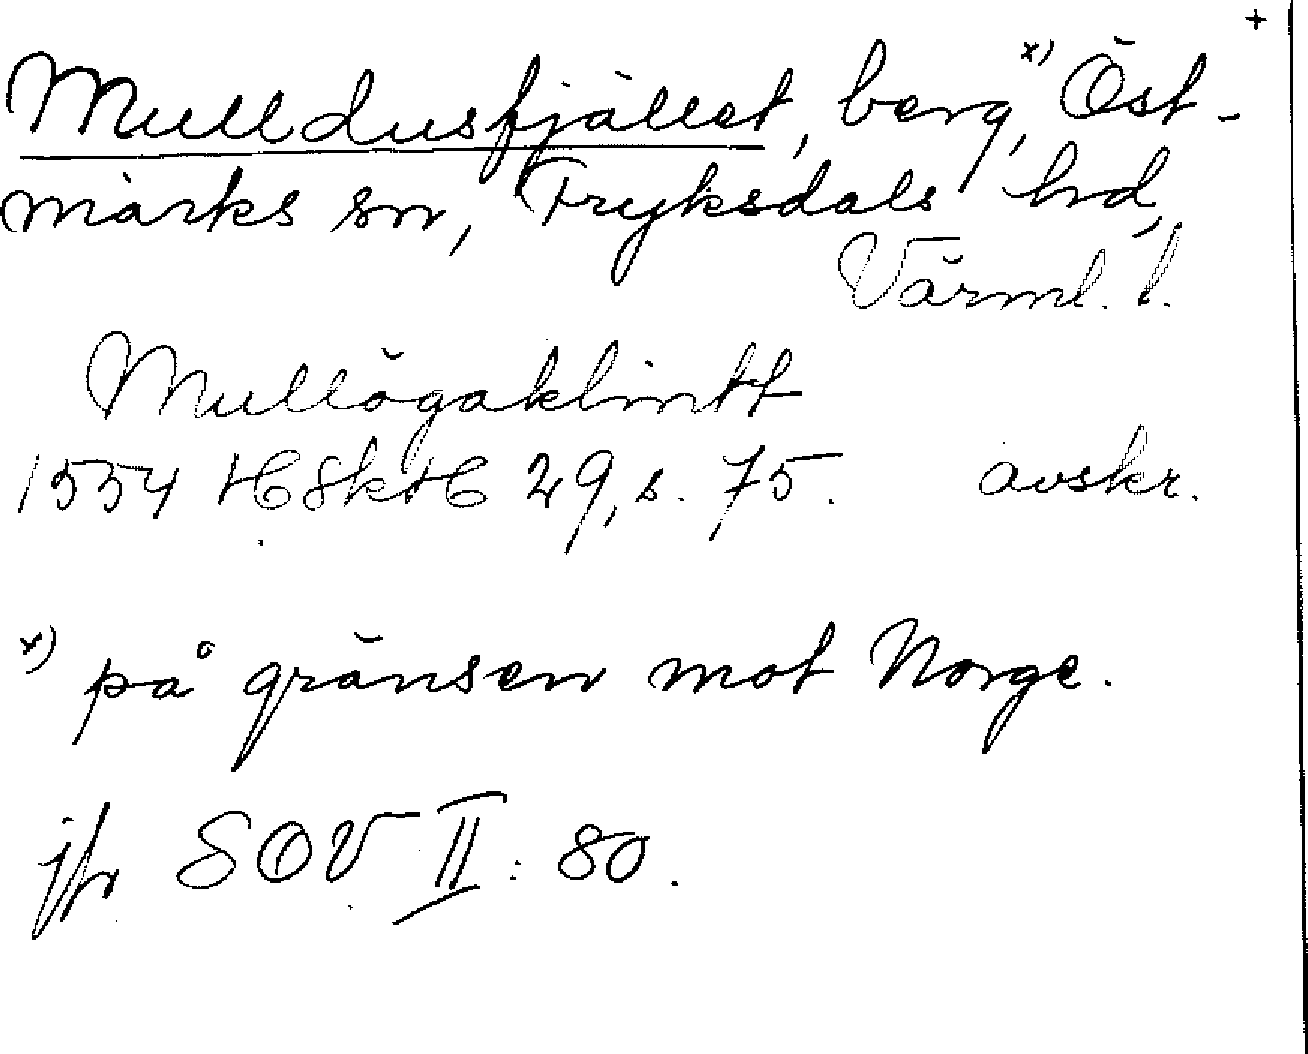 +
Mulldusfjället, berg,ˣ⁾ Öst-
marks sn, Fryksdals hd,
Värml. l.
Mullögaklintt
1554 HSkH 29, s. 75. avskr.
x) på gränsen mot Norge.
jfr SOV II: 80.